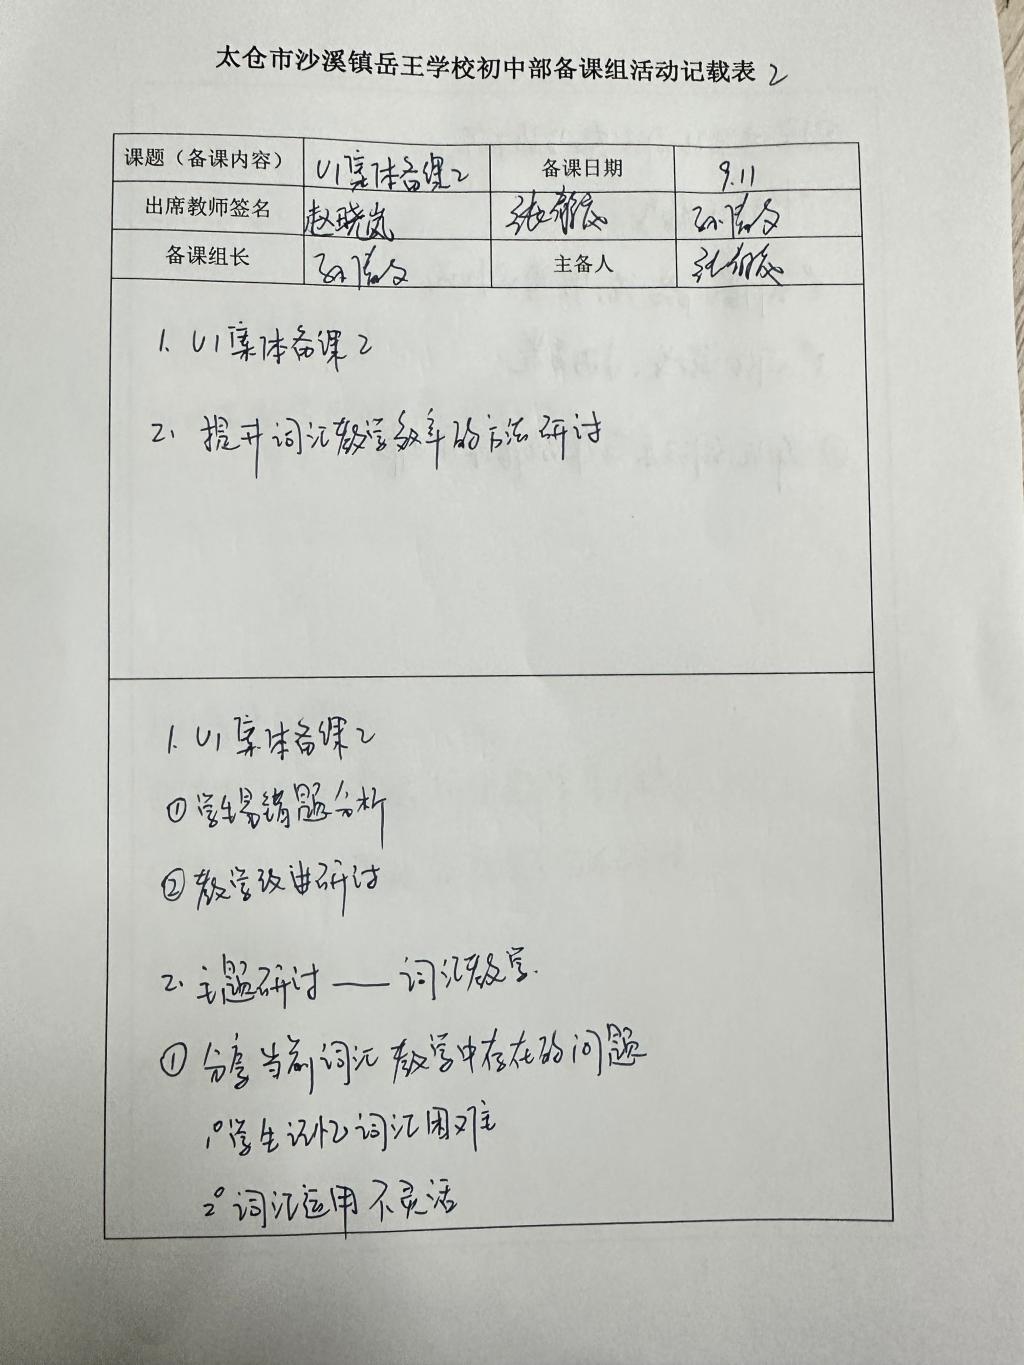 太仓市沙溪镇岳王学校初中部备课组活动记载表 2
课题（备课内容） U1集体备课2 备课日期 9.11
出席教师签名 赵晓岚
备课组长 主备人
1. U1集体备课2
2. 提升词汇教学效率的方法研讨
1. U1集体备课2
①学生易错题分析
②教学改进研讨
2. 主题研讨——词汇教学.
① 分享当前词汇教学中存在的问题
1°学生记忆词汇困难
2°词汇运用不灵活